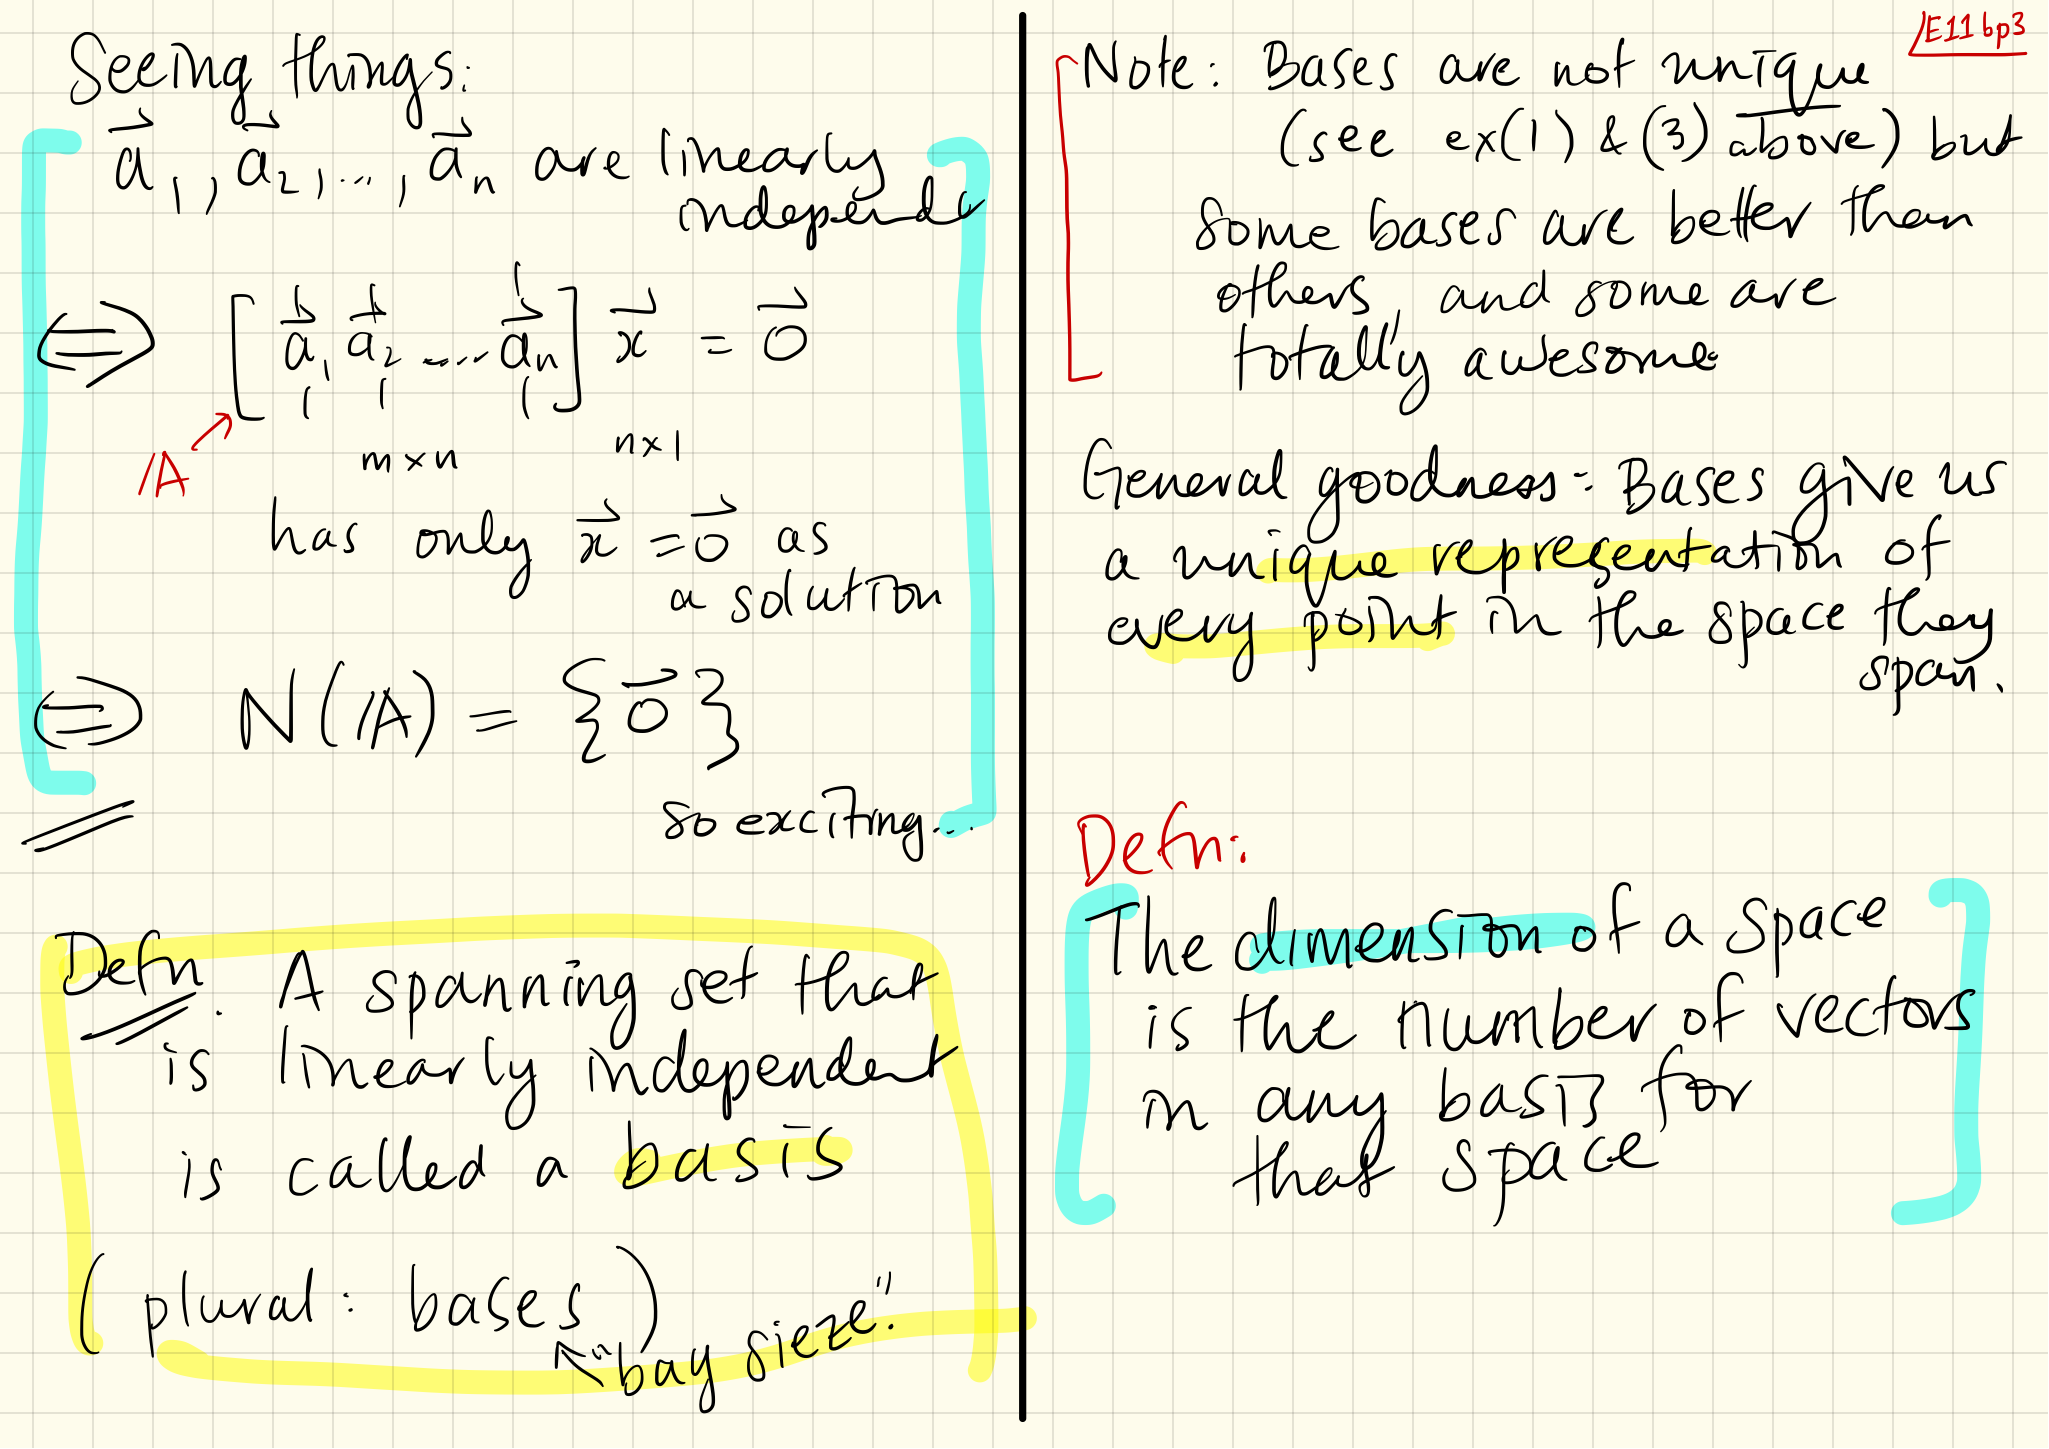 Seeing things:
a⃗₁, a⃗₂, ..., a⃗ₙ are linearly
independe
⇔ [a⃗₁ a⃗₂ .... a⃗ₙ] x⃗ = 0⃗
A m×n n×1
has only x⃗ = 0⃗ as
a solution
⇔ N(A) = {0⃗}
so exciting...
Defn. A spanning set that
is linearly independent
is called a basis
(plural: bases)
"bay sieze."
E11bp3
Note: Bases are not unique
(see ex(1) & (3) above) but
some bases are better than
others, and some are
totally awesome.
General goodness: Bases give us
a unique representation of
every point in the space they
span.
Defn:
The dimension of a space
is the number of vectors
in any basis for
that space